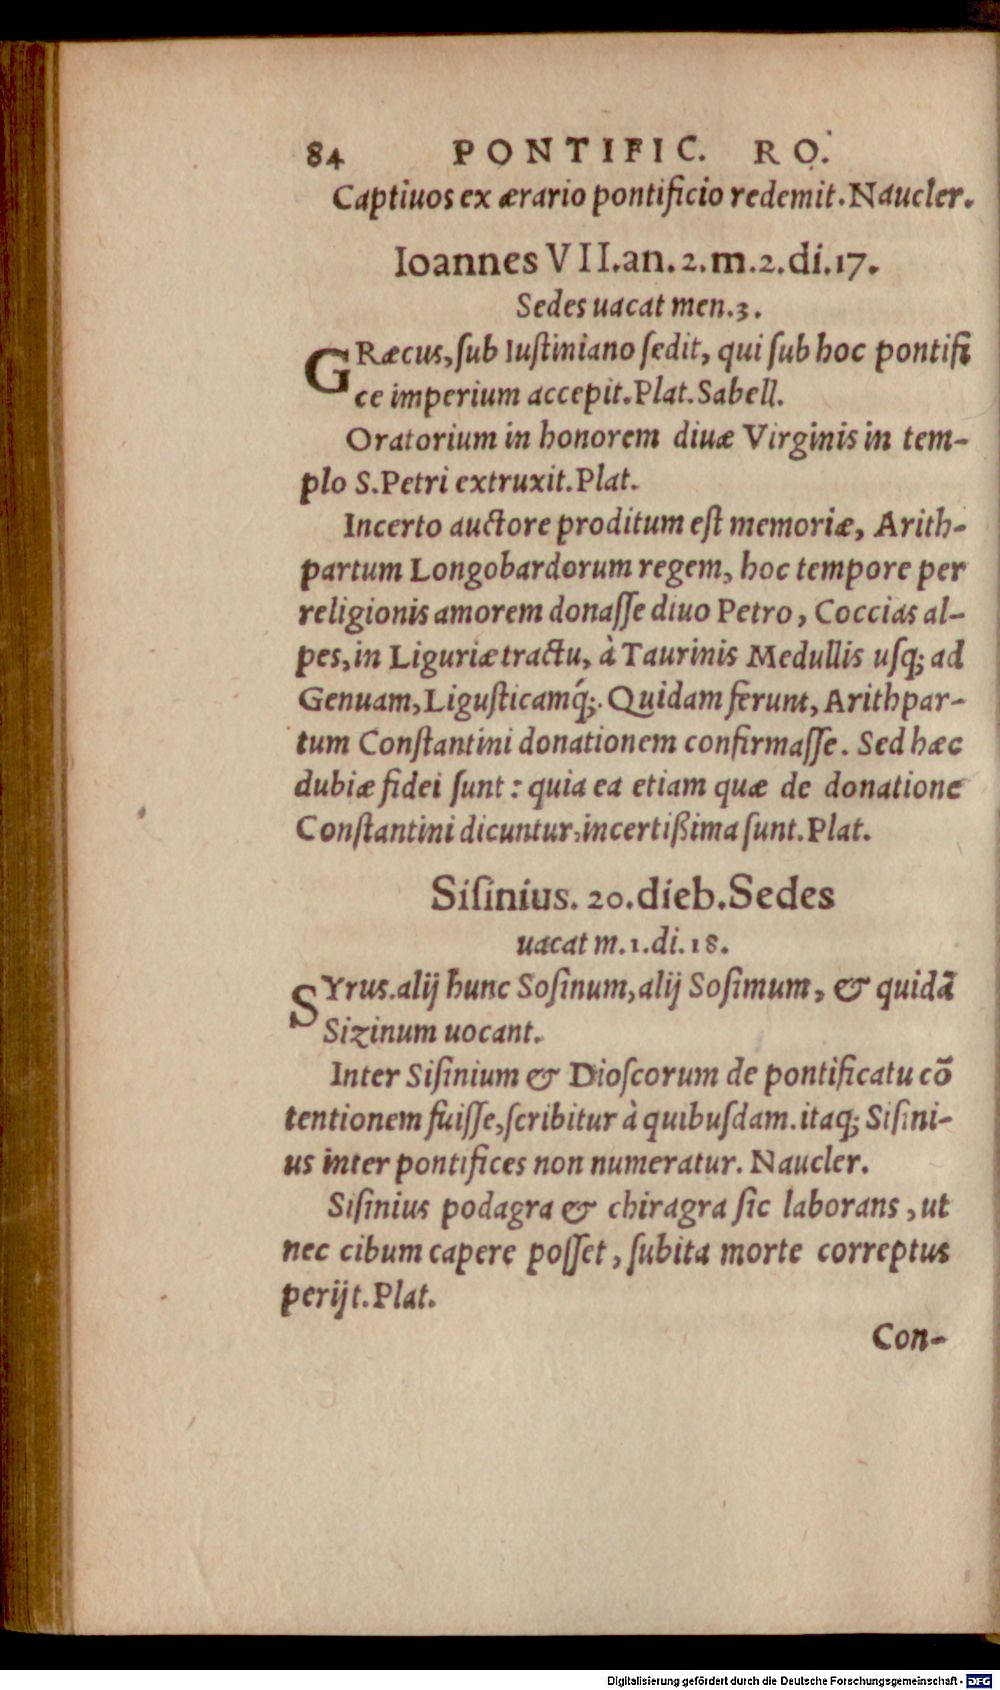 84 PONTIFIC. RO.
Captiuos ex ærario pontificio redemit. Naucler.
Ioannes VII. an. 2. m. 2. di. 17.
Sedes uacat men. 3.
GRæcus, ſub Iuſtiniano ſedit, qui ſub hoc pontifi
ce imperium accepit. Plat. Sabell.
Oratorium in honorem diuæ Virginis in tem-
plo S. Petri extruxit. Plat.
Incerto auctore proditum eſt memoriæ, Arith-
partum Longobardorum regem, hoc tempore per
religionis amorem donaſſe diuo Petro, Coccias al-
pes, in Liguriæ tractu, à Taurinis Medullis uſq; ad
Genuam, Liguſticamq́;. Quidam ferunt, Arithpar-
tum Conſtantini donationem confirmaſſe. Sed hæc
dubiæ fidei ſunt: quia ea etiam quæ de donatione
Conſtantini dicuntur, incertißima ſunt. Plat.
Siſinius. 20. dieb. Sedes
uacat m. 1. di. 18.
SYrus. alij hunc Soſinum, alij Soſimum, & quidã
Sizinum uocant.
Inter Siſinium & Dioſcorum de pontificatu cõ
tentionem fuiſſe, ſcribitur à quibuſdam. itaq; Siſini-
us inter pontifices non numeratur. Naucler.
Siſinius podagra & chiragra ſic laborans, ut
nec cibum capere poſſet, ſubita morte correptus
perijt. Plat.
Con-
Digitalisierung gefördert durch die Deutsche Forschungsgemeinschaft - DFG